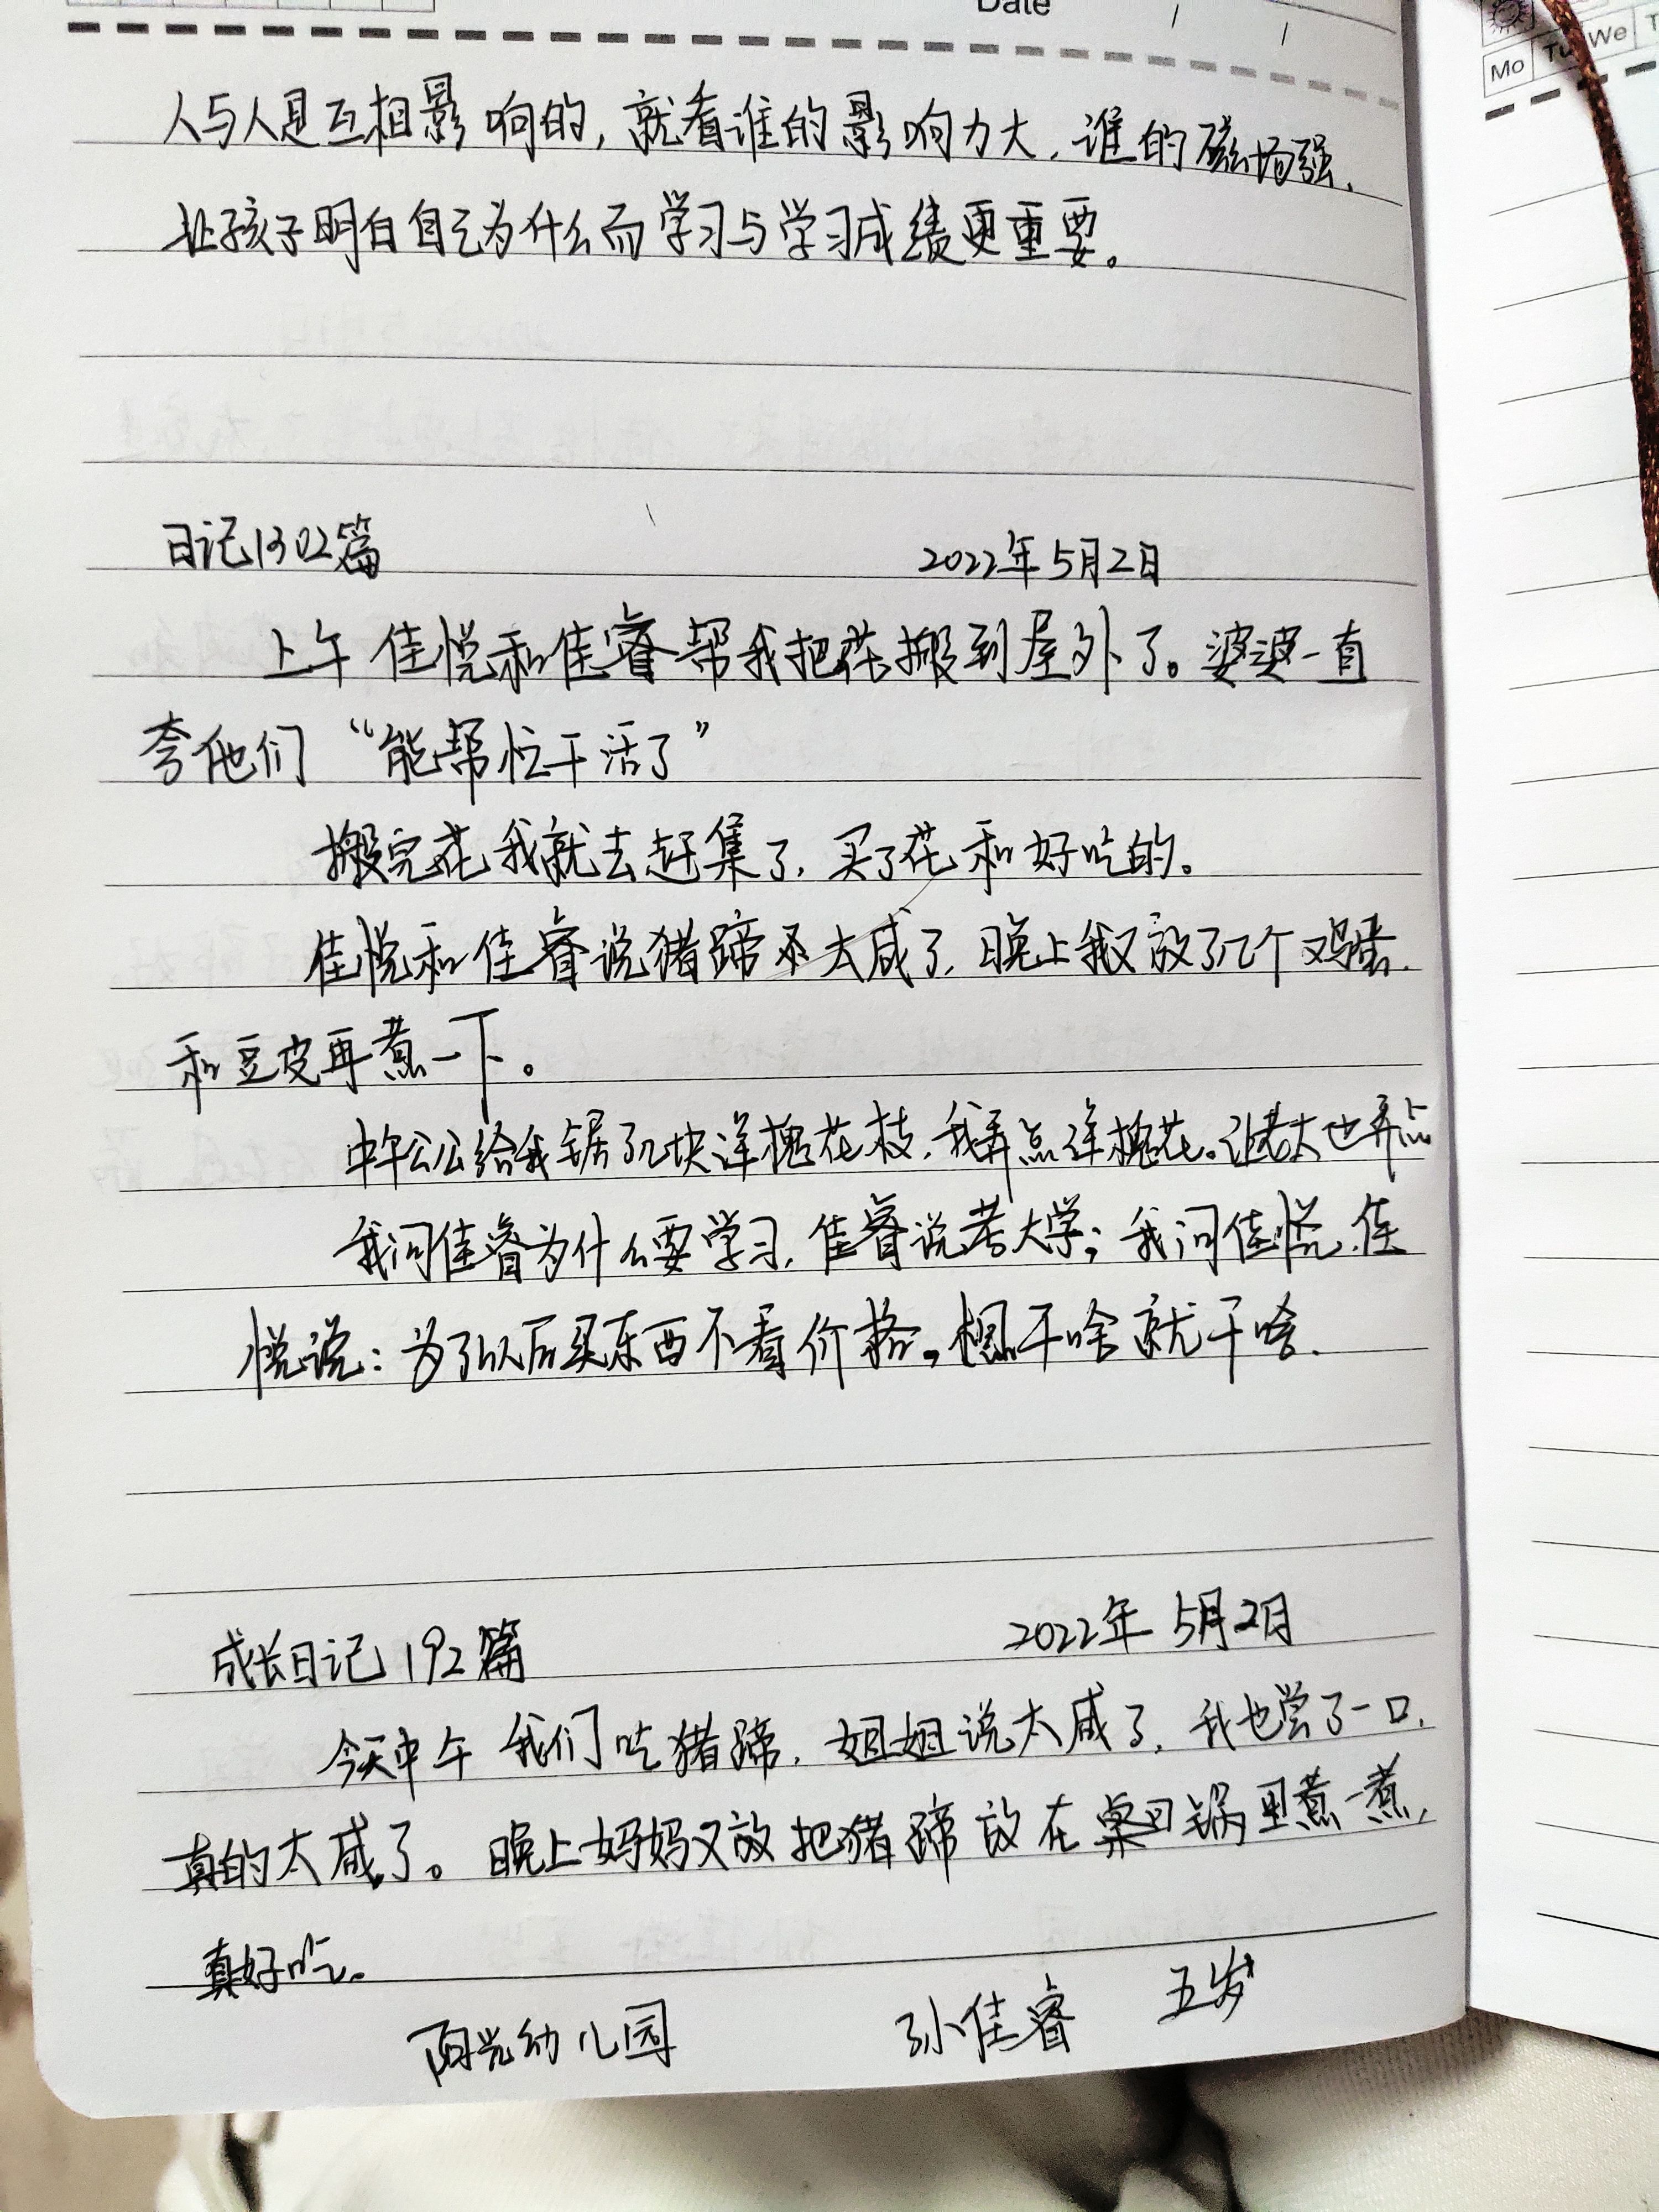 Date
Mo Tu We T
人与人是互相影响的,就看谁的影响力大,谁的磁场强,
让孩子明白自己为什么而学习与学习成绩更重要。
日记1302篇 2022年5月2日
上午佳悦和佳睿帮我把花搬到屋外了。婆婆一直
夸他们“能帮忙干活了”
搬完花我就去赶集了,买了花和好吃的。
佳悦和佳睿说猪蹄太咸了,晚上我又放了几个鸡蛋,
和豆皮再煮一下。
中午公公给我锯了几块洋槐花枝,我弄点洋槐花。让老大也弄点
我问佳睿为什么要学习,佳睿说考大学;我问佳悦,佳
悦说:为了以后买东西不看价格,想干啥就干啥.
成长日记192篇 2022年5月2日
今天中午我们吃猪蹄,姐姐说太咸了,我也尝了一口,
真的太咸了。晚上妈妈又放把猪蹄放在锅里煮一煮,
真好吃。
阳光幼儿园 孙佳睿 五岁